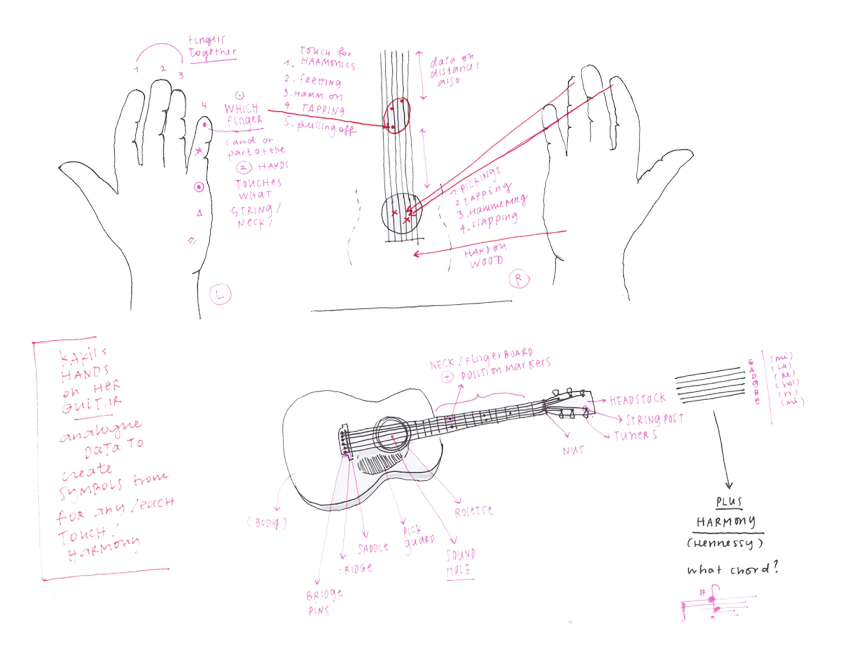 Fingers
Together
1 2 3
4
WHICH
Finger
(and or
part of the
2 HANDS
TOUCHES
WHAT
STRING/
NECK)
L
TOUCH for
HARMONICS
1.
2. fretting
3. HAMM ON
4. TAPPING
5. pulling off
data on
distances
also
1 PICKINGS
2 TAPPING
3. HAMMERING
4. Slapping
HAND ON
WOOD
R
KAKIIS
HANDS
on HER
GUITAR
analogue
DATA TO
create
SYMBOLS from
FOR any/each
TOUCH/
HARMONY
NECK/FingerBOARD
+ POSITION MARKERS
HEADSTOCK
STRINGPOST
TUNERS
NUT
(BODY)
ROSETTE
PICK
GUARD
SADDLE
BRIDGE
SOUND
HOLE
BRIDGE
PINS
E (mi)
A (La)
D (Re)
G (sol)
B (si)
E (mi)
PLUS
HARMONY
(Hennessy)
what chord?
#